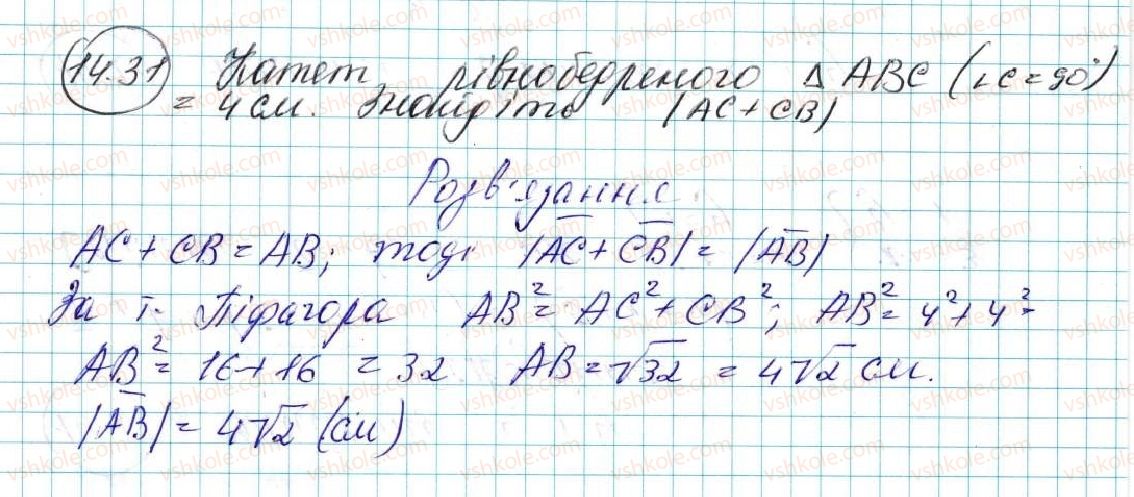 14.31 Катет рівнобедреного Δ ABC (∠C = 90°)
= 4 см. Знайдіть |AC + CB|
Розв'язання
AC + CB = AB; тоді |A͞C͞ + C͞B͞| = |A͞B͞|
За т. Піфагора AB² = AC² + CB²; AB² = 4² + 4² =
AB² = 16 + 16 = 32 AB = √32 = 4√2 см.
|A͞B͞| = 4√2 (см)